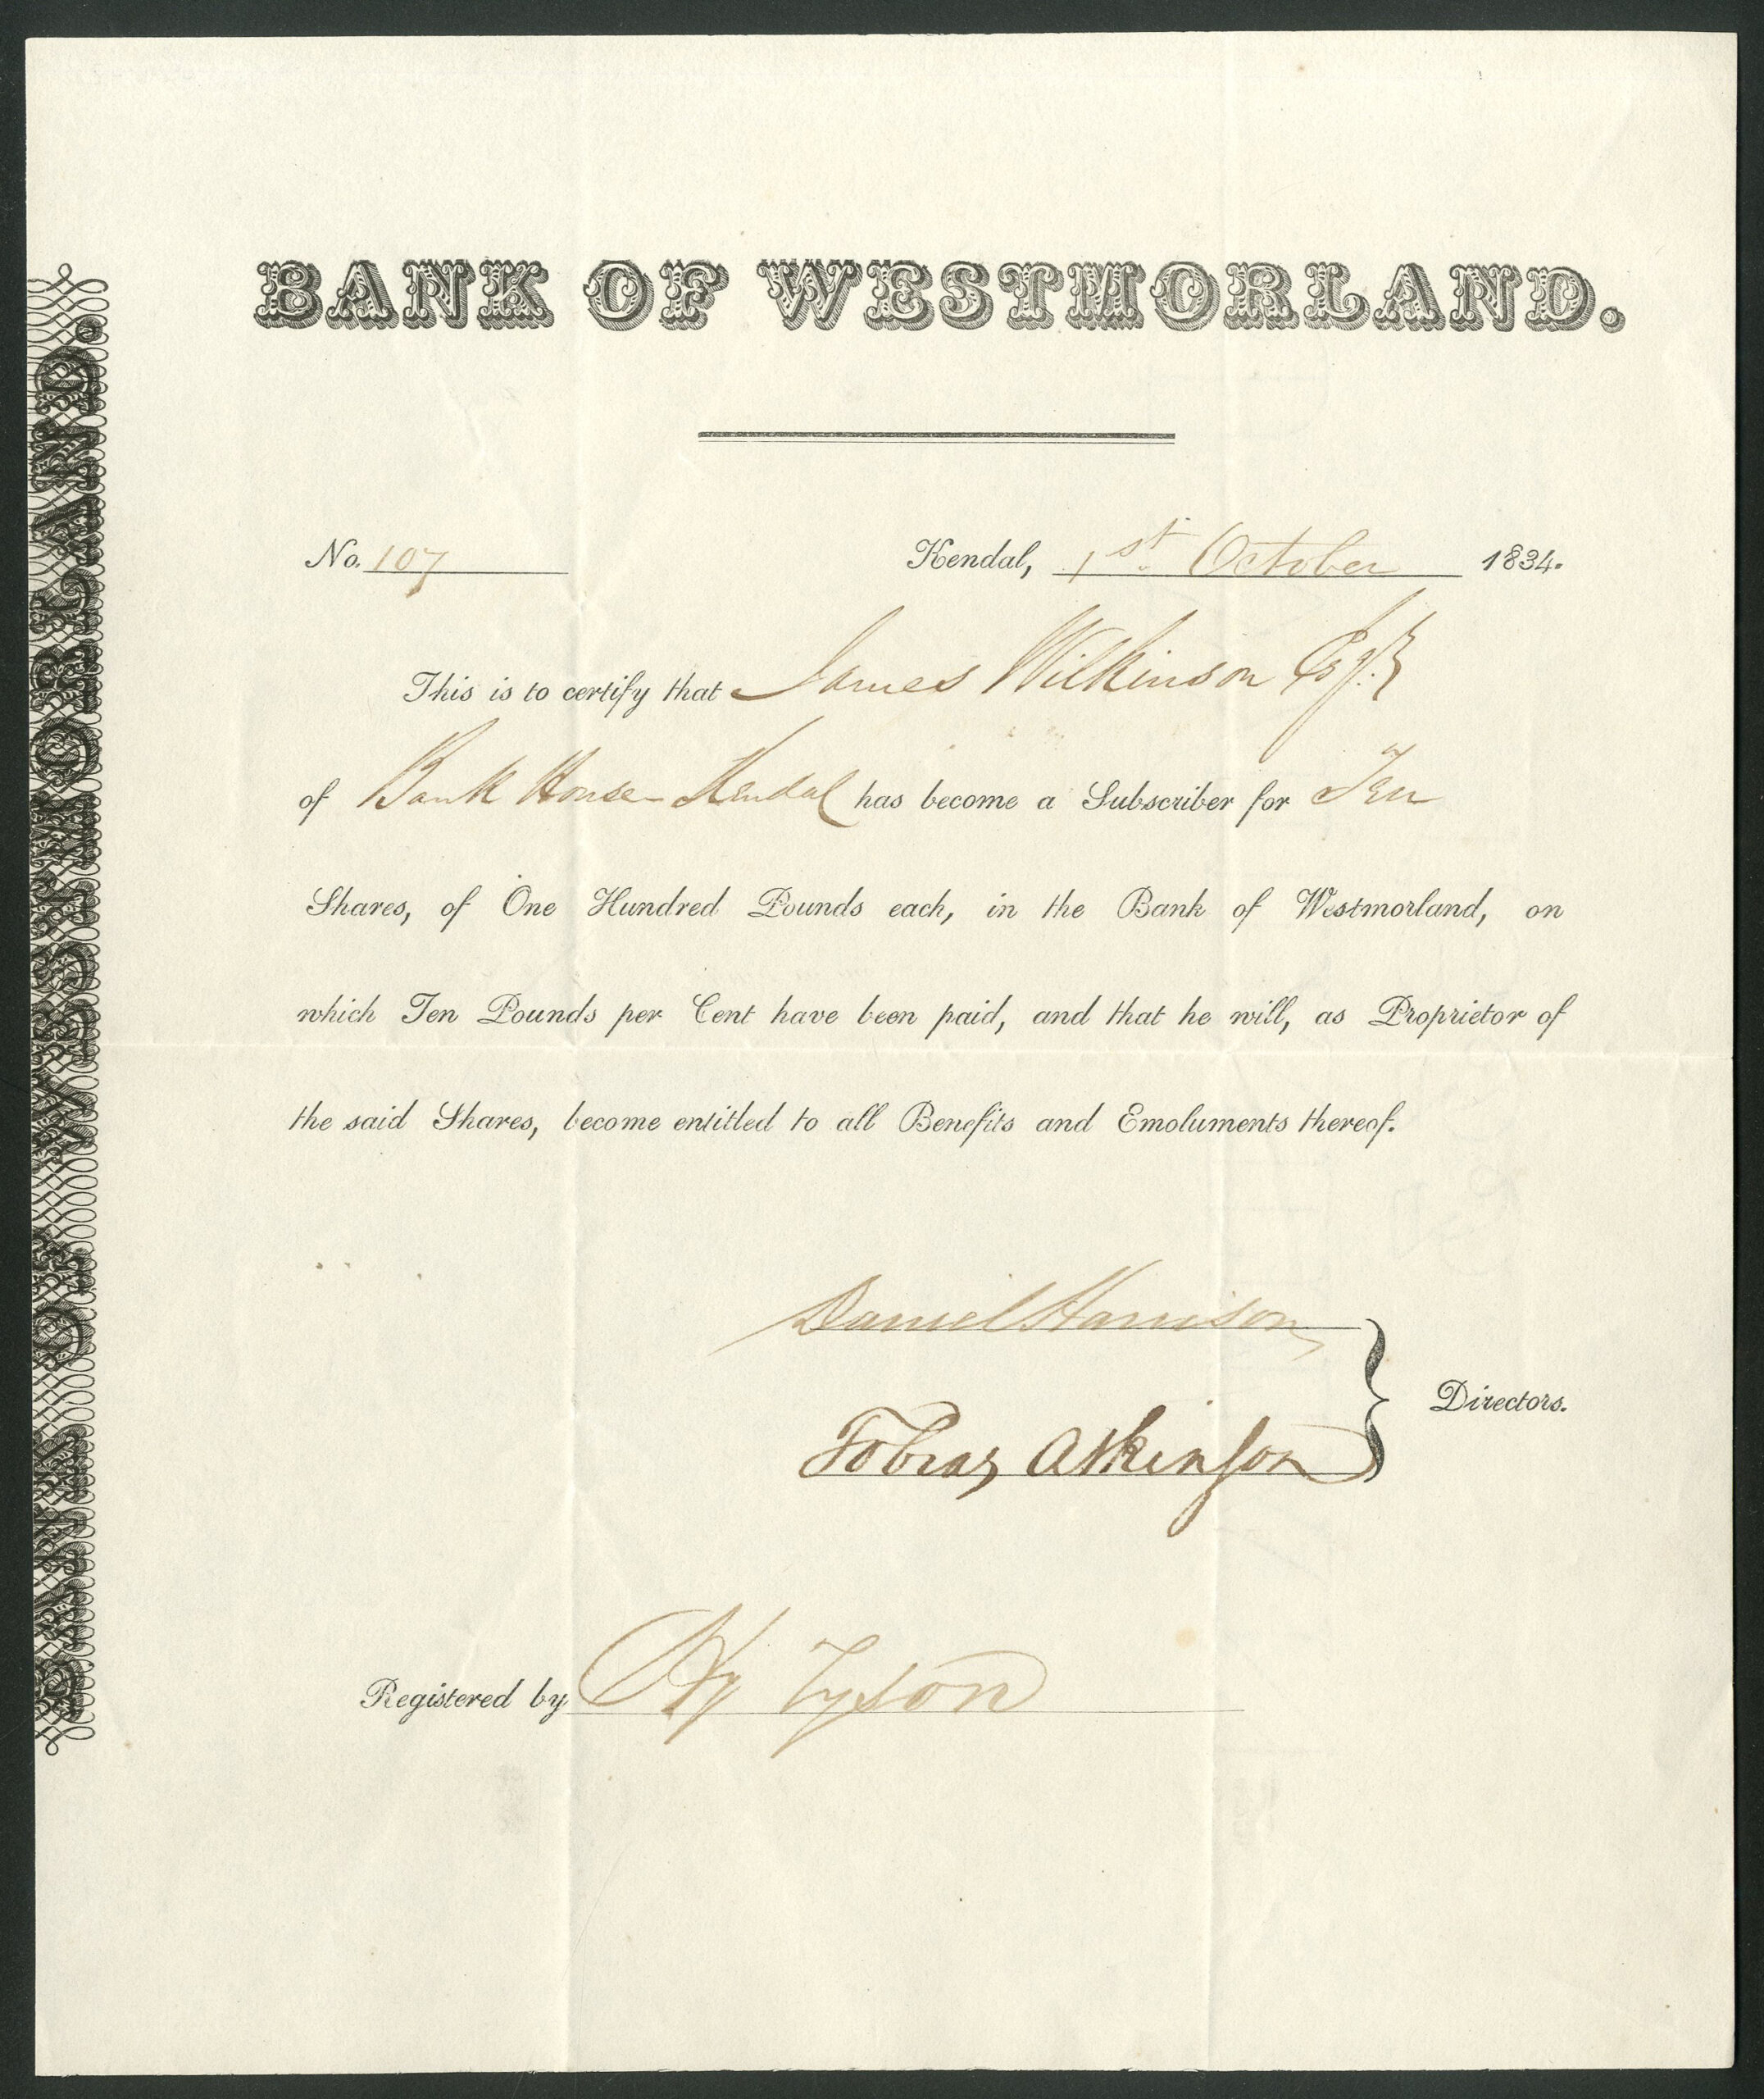 BANK OF WESTMORLAND.
BANK OF WESTMORLAND.
No. 107 Kendal, 1st October 1834.
This is to certify that James Wilkinson Esqr
of Bank House Kendal has become a Subscriber for Ten
Shares, of One Hundred Pounds each, in the Bank of Westmorland, on
which Ten Pounds per Cent have been paid, and that he will, as Proprietor of
the said Shares, become entitled to all Benefits and Emoluments thereof.
Daniel Harrison
Directors.
Tobias Atkinson
Registered by Hy Tyson